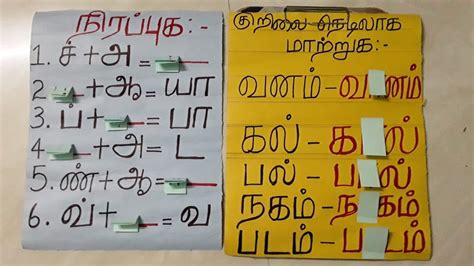 நிரப்புக:-
1. ச் + அ =
2. + ஆ = யா
3. ப் + = பா
4. + அ = ட
5. ண் + ஆ =
6. வ் + = வ
குறிலை நெடிலாக
மாற்றுக:-
வனம் - வ னம்
கல் - க ல்
பல் - ப ல்
நகம் - ந கம்
படம் - ப டம்